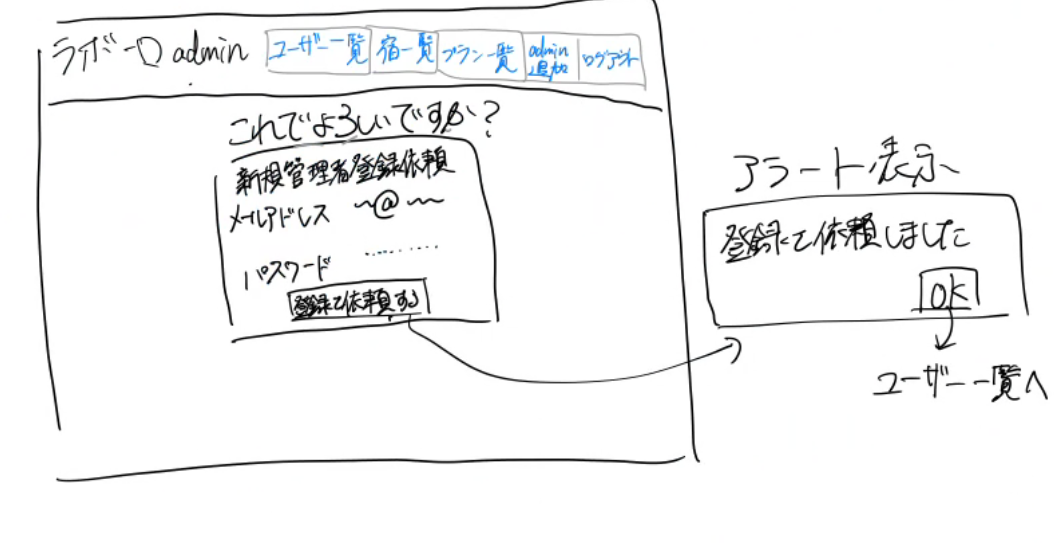 ライボーロ admin
ユーザー一覧
宿一覧
プラン一覧
admin
追加
ログアウト
これでよろしいですか?
新規管理者登録依頼
メールアドレス ~@~~
パスワード ........
登録を依頼する
アラート表示
登録を依頼しました
OK
ユーザー一覧へ